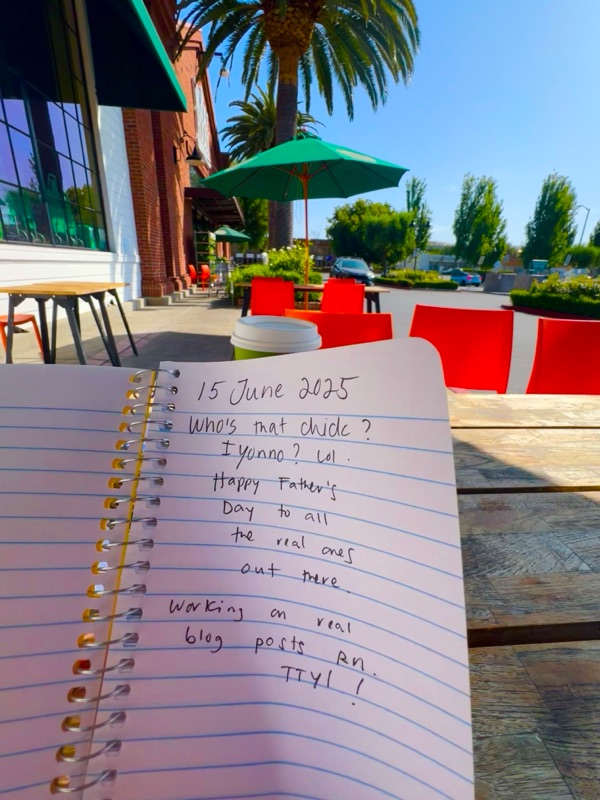 15 June 2025
Who's that chick?
Iyonno? Lol.
Happy Father's
Day to all
the real ones
out there.
Working on real
blog posts RN.
TTYl!